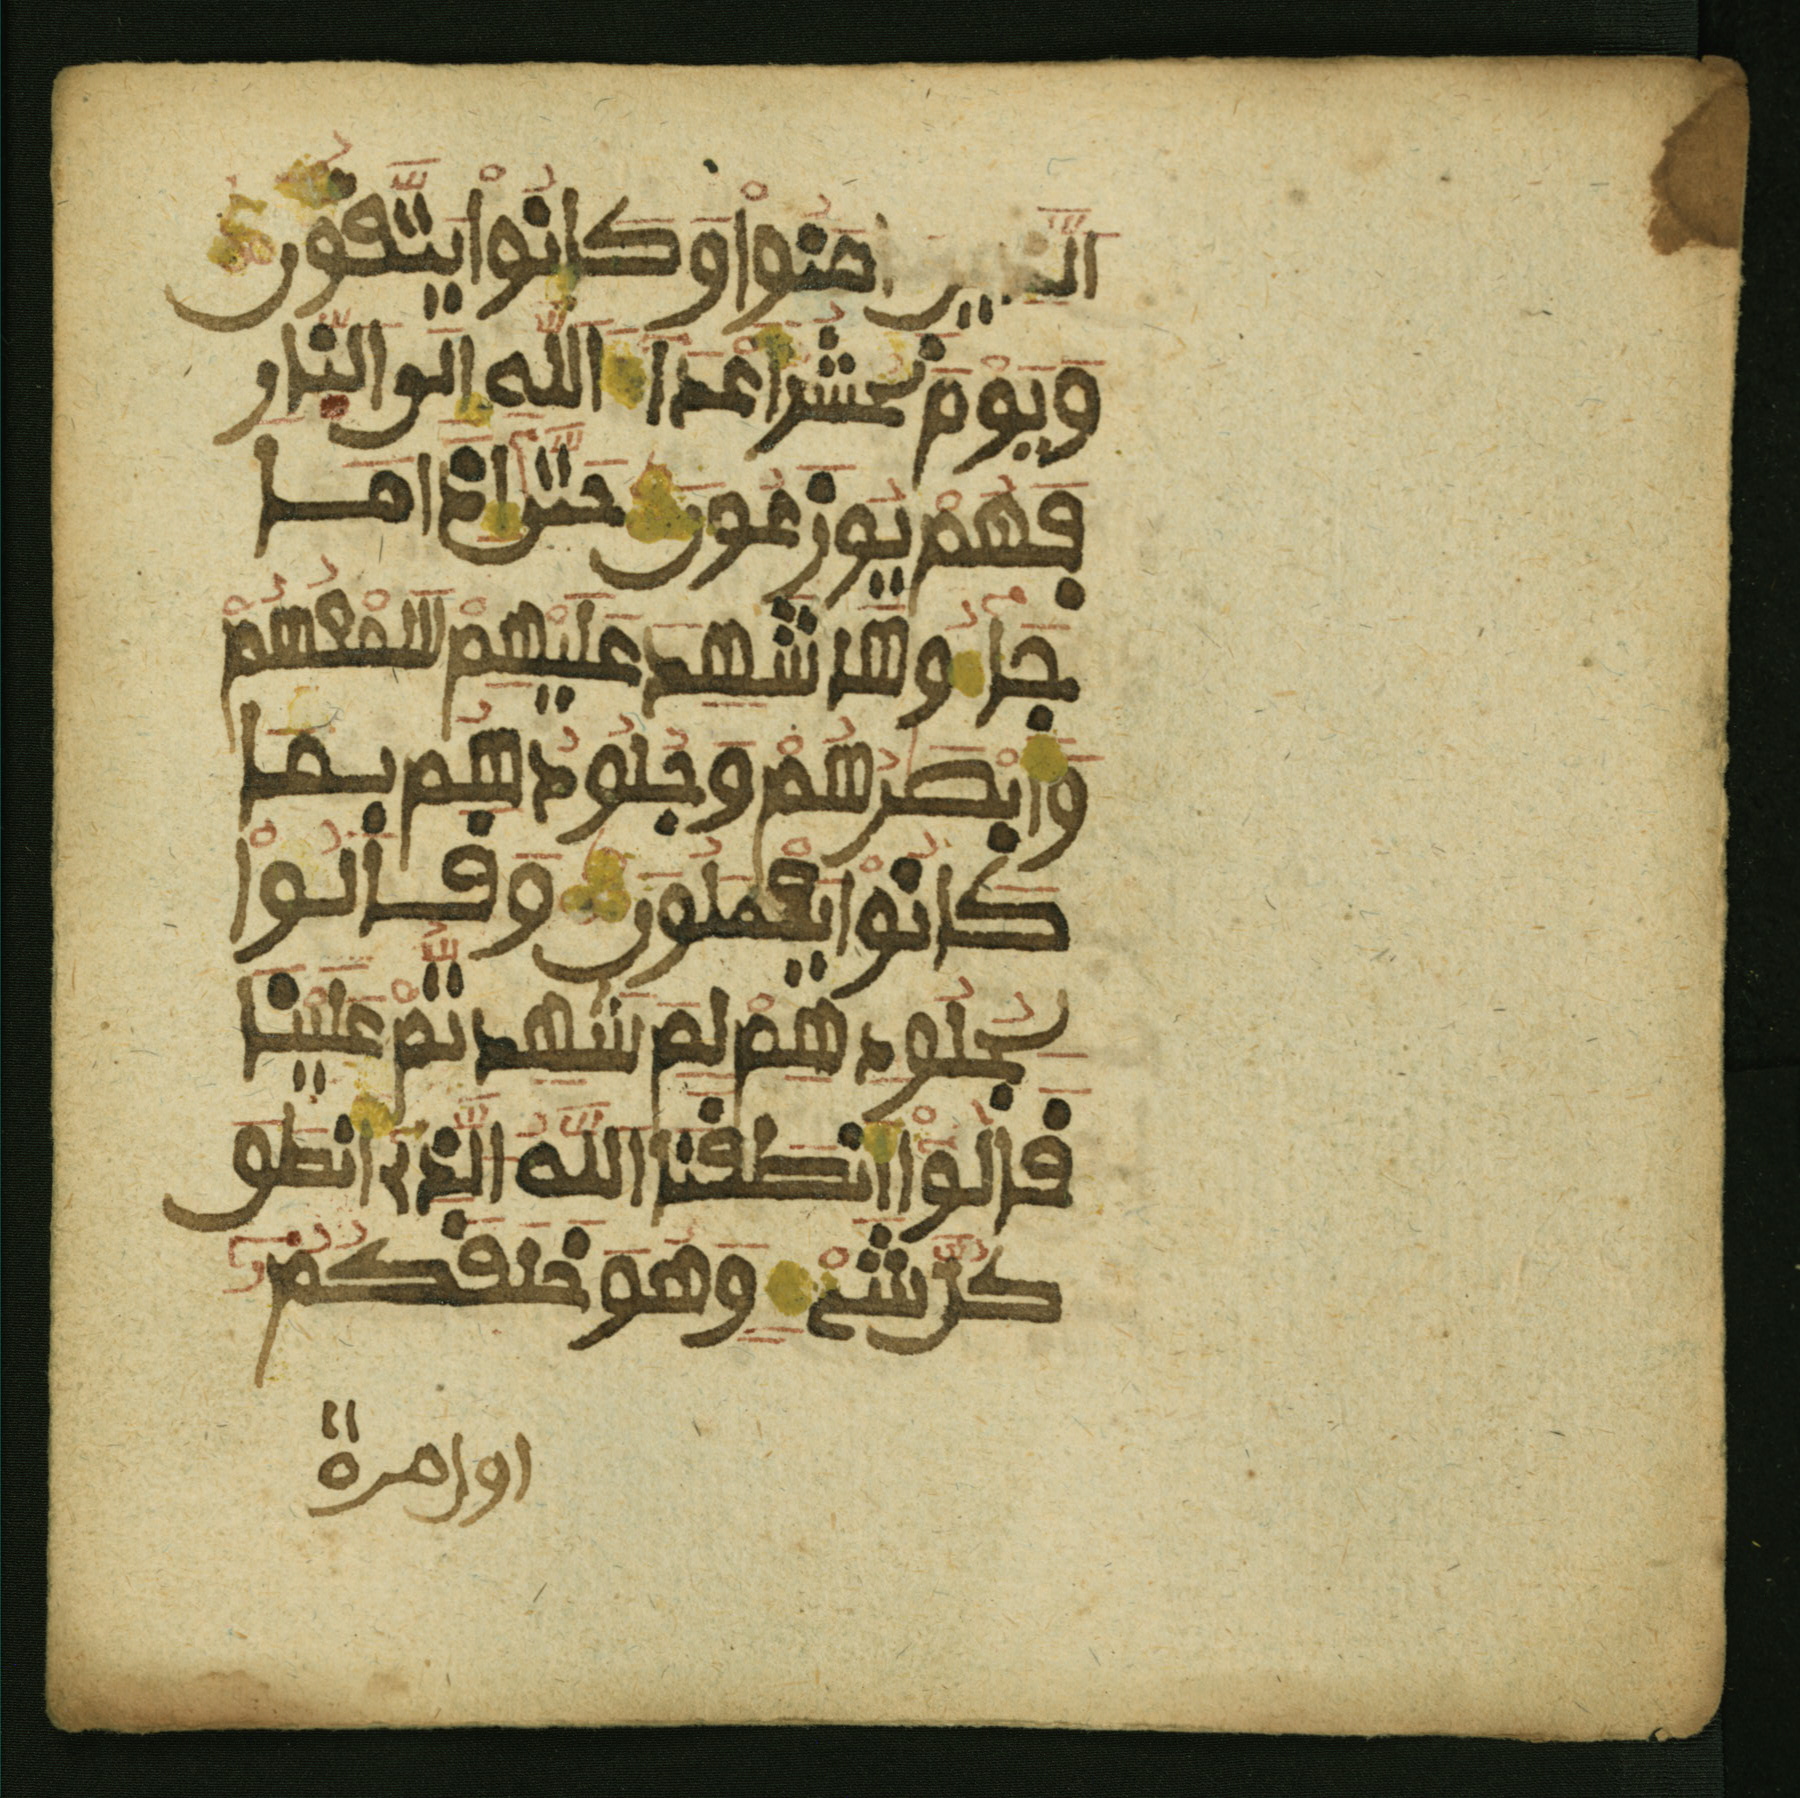 الذين امنوا وكانوا يتقون
ويوم نحشر اعداء الله الى النار
فهم يوزعون حتى اذا ما
جاءوها شهد عليهم سمعهم
وابصرهم وجلودهم بما
كانوا يعملون وقالوا
لجلودهم لم شهدتم علينا
قالوا انطقنا الله الذى انطق
كل شىء وهو خلقكم
اول مرة